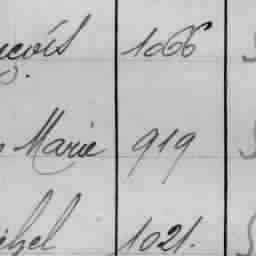 çois 1066
Marie 919
chel 1021.